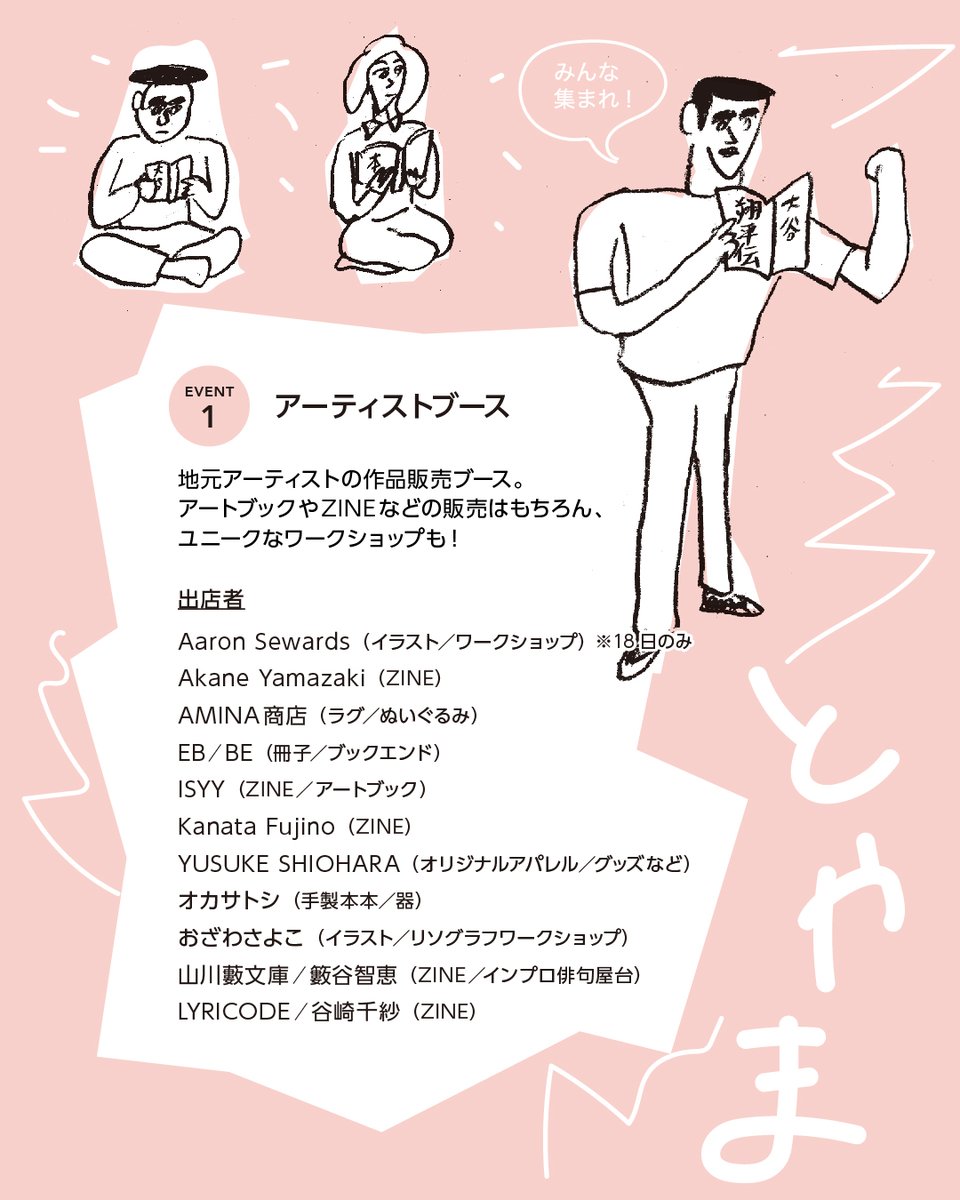 みんな
集まれ！
大谷
翔平伝
本
EVENT
1
アーティストブース
地元アーティストの作品販売ブース。
アートブックやZINEなどの販売はもちろん、
ユニークなワークショップも！
出店者
Aaron Sewards（イラスト／ワークショップ）※18日のみ
Akane Yamazaki（ZINE）
AMINA商店（ラグ／ぬいぐるみ）
EB／BE（冊子／ブックエンド）
ISYY（ZINE／アートブック）
Kanata Fujino（ZINE）
YUSUKE SHIOHARA（オリジナルアパレル／グッズなど）
オカサトシ（手製本本／器）
おざわさよこ（イラスト／リソグラフワークショップ）
山川藪文庫／籔谷智恵（ZINE／インプロ俳句屋台）
LYRICODE／谷崎千紗（ZINE）
とやま